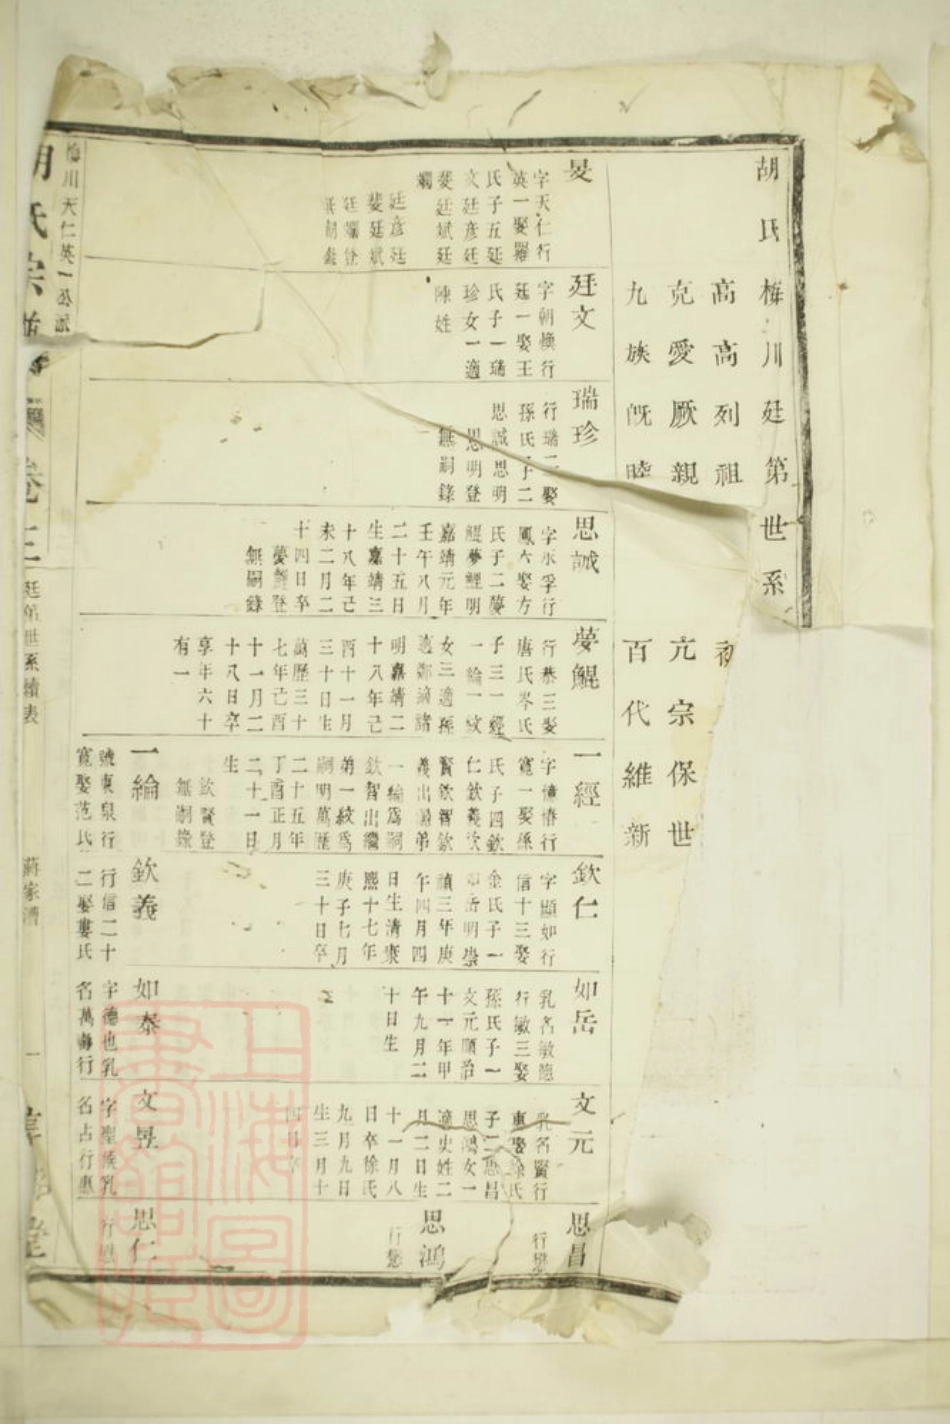 胡氏梅川廷第世系
高高列祖
克愛厥親
亢宗保世
九族旣睦
百代維新
旻
字天仁行
英一娶羅
氏子五廷
文廷彦廷
斐廷斌廷
廷彦廷
斐廷斌
廷文
字朝煥行
廷一娶王
氏子一瑞
珍女一適
陳姓
瑞珍
行瑞二娶
孫氏子二
思誠思明
思明登
無嗣錄
思誠
字永孚行
鳳六娶方
氏子二夢
鯤夢鯉明
嘉靖元年
壬午八月
二十五日
生嘉靖三
十八年己
未二月二
十四日卒
夢鯉登
無嗣錄
夢鯤
行恭三娶
唐氏岑氏
子三一經
一綸一紋
女三適孫
適鄭適諸
明嘉靖二
十八年己
酉十一月
三十日生
萬歷三十
七年己酉
十一月二
十八日卒
享年六十
有一
一經
寬一娶孫
氏子四欽
仁欽義欽
賢欽智欽
義出繼弟
一綸爲嗣
欽智出繼
弟一紋爲
嗣明萬歷
二十五年
丁酉正月
二十一日
生
欽賢登
無嗣錄
一綸
號東泉行
寬娶范氏
欽仁
字顯如行
信十三娶
金氏子一
如岳明崇
禎三年庚
午四月四
日生清康
熙十七年
庚子七月
三十日卒
欽義
行信二十
二娶婁氏
如岳
乳名敏德
行敏三娶
孫氏子一
文元順治
十一年甲
午九月二
十日生
如泰
字德也乳
名萬壽行
文元
乳名賢行
惠娶徐氏
子二思昌
思鴻女一
適史姓二
月二日生
十一月八
日卒徐氏
九月九日
生三月十
四日卒
文昱
字聖候乳
名占行惠
思昌
思鴻
思仁
梅川天仁英一公派
胡氏宗譜
卷三
廷第世系續表
蔣家漕
一
上海圖書館藏